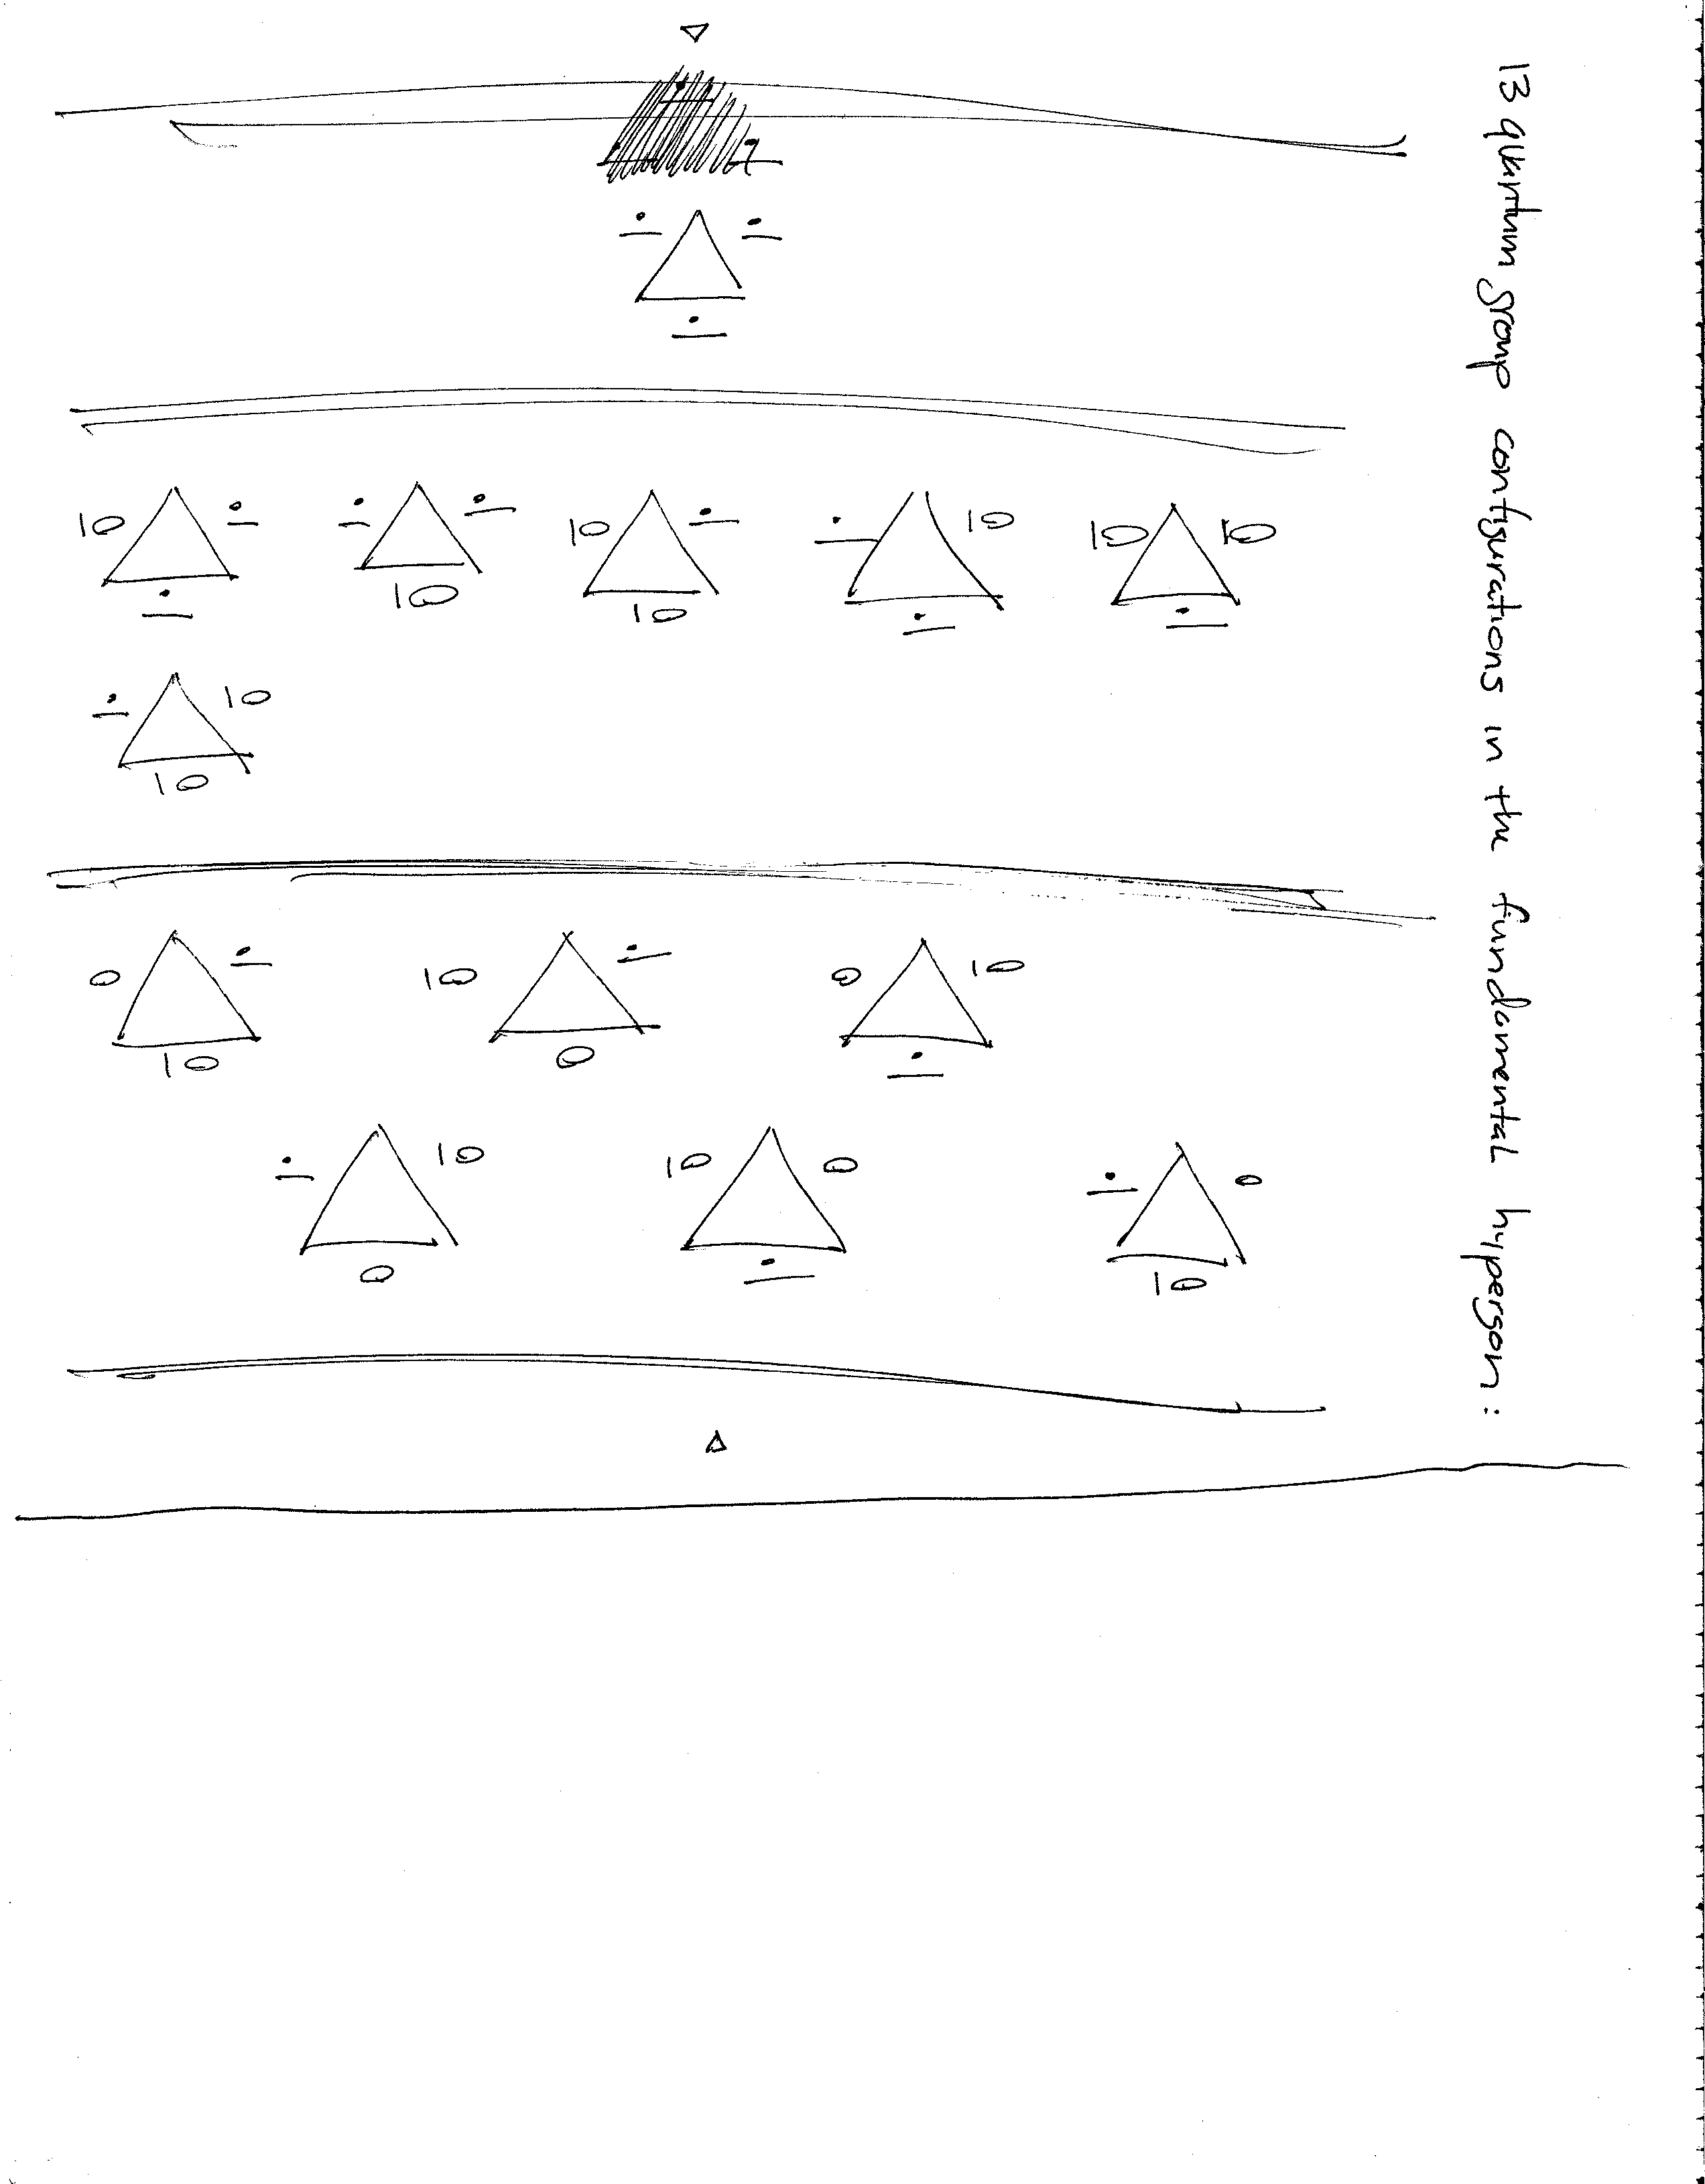 13 quantum group configurations in the fundamental hyperson:
∸ ∸
∸
10 ∸ ∸ ∸ 10 ∸ ∸ 10 10 10
∸ 10 10 ∸ ∸
∸ 10
10
0 ∸ 10 ∸ 0 10
10 0 ∸
∸ 10 10 0 ∸ 0
0 ∸ 10